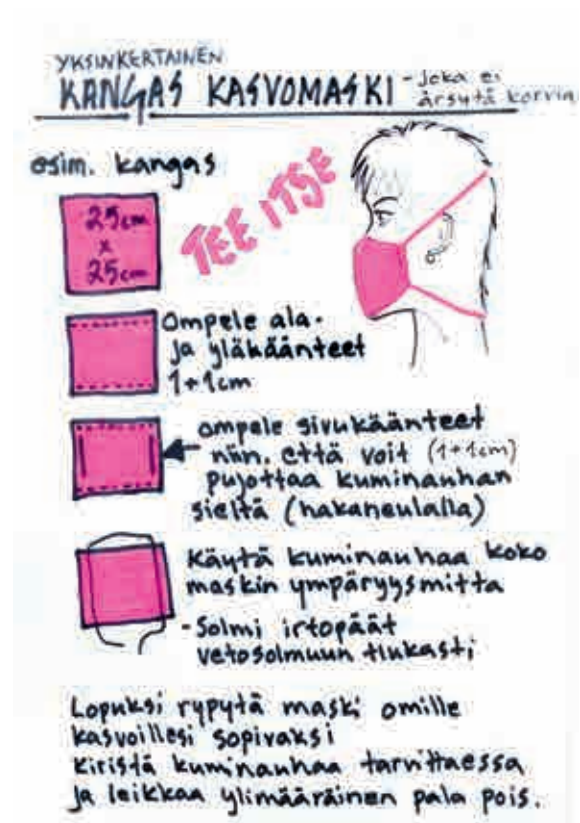 YKSINKERTAINEN
KANGAS KASVOMASKI - joka ei
ärsytä korvia
esim. kangas
TEE ITSE
25cm
x
25cm
Ompele ala-
ja yläkäänteet
1+1cm
ompele sivukäänteet
niin, että voit (1+1cm)
pujottaa kuminauhan
sieltä (hakaneulalla)
Käytä kuminauhaa koko
maskin ympäryysmitta
- Solmi irtopäät
vetosolmuun tiukasti
Lopuksi rypytä maski omille
kasvoillesi sopivaksi
kiristä kuminauhaa tarvittaessa
ja leikkaa ylimääräinen pala pois.